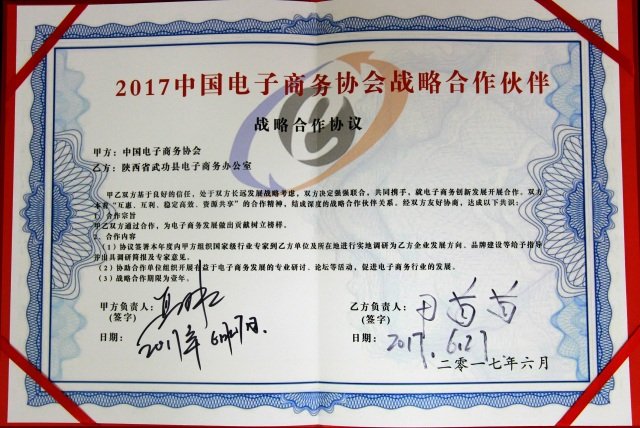 2017中国电子商务协会战略合作伙伴
战略合作协议
甲方：中国电子商务协会
乙方：陕西省武功县电子商务办公室
甲乙双方基于良好的信任，处于双方长远发展战略考虑，双方决定强强联合，共同携手，就电子商务创新发展开展合作。双方
本着“互惠、互利、稳定高效、资源共享”的合作精神，结成深度的战略合作伙伴关系。经双方友好协商，达成以下共识：
1、合作宗旨
甲乙双方通过合作，为电子商务发展做出贡献树立榜样。
2、合作内容
（1）协议签署本年度内甲方组织国家级行业专家到乙方单位及所在地进行实地调研为乙方企业发展方向、品牌建设等给予指导
并出具调研简报及专家意见。
（2）协助合作单位组织开展有益于电子商务发展的专业研讨、论坛等活动，促进电子商务行业的发展。
（3）战略合作期限为壹年。
甲方负责人：
（签字）
日期：2017年6月27日.
乙方负责人：
（签字）
日期：2017.6.27
二零一七年六月